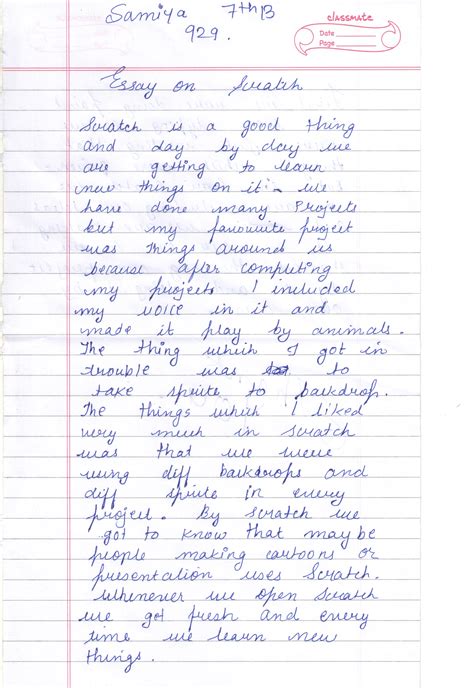 Samiya 7thB
929.
classmate
Date
Page
Essay on Scratch
Scratch is a good thing
and day by day we
are getting to learn
new things on it - we
have done many Projects
but my favourite project
was Things around us
because after completing
my projects I included
my voice in it and
made it play by animals.
The thing which I got in
trouble was to
take sprite to backdrop.
The things which I liked
very much in scratch
was that we were
using diff backdrops and
diff sprite in every
project. By scratch we
got to know that maybe
people making cartoons or
presentation uses Scratch.
Whenever we open Scratch
we get fresh and every
time we learn new
things.